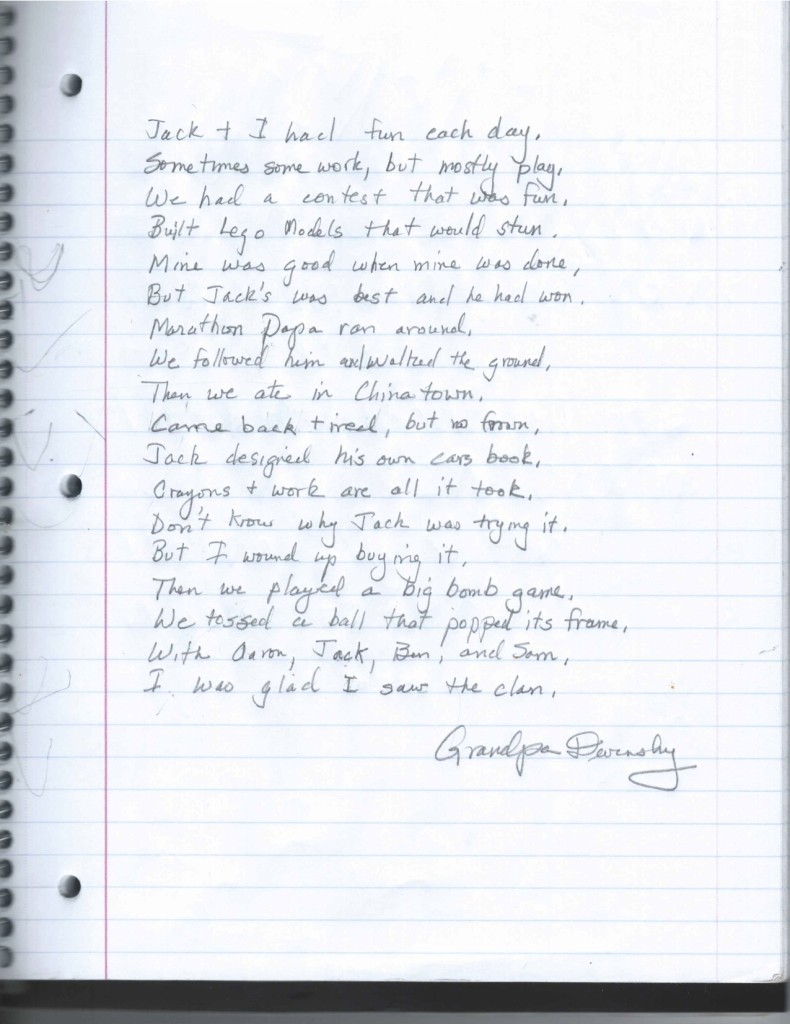 Jack + I had fun each day.
Sometimes some work, but mostly play.
We had a contest that was fun,
Built Lego Models that would stun.
Mine was good when mine was done,
But Jack's was best and he had won.
Marathon Papa ran around,
We followed him and walked the ground,
Then we ate in Chinatown,
Came back tired, but no frown,
Jack designed his own cars book,
Crayons + work are all it took,
Don't know why Jack was trying it.
But I wound up buying it,
Then we played a big bomb game,
We tossed a ball that popped its frame,
With Aaron, Jack, Ben, and Sam,
I was glad I saw the clan,
Grandpa